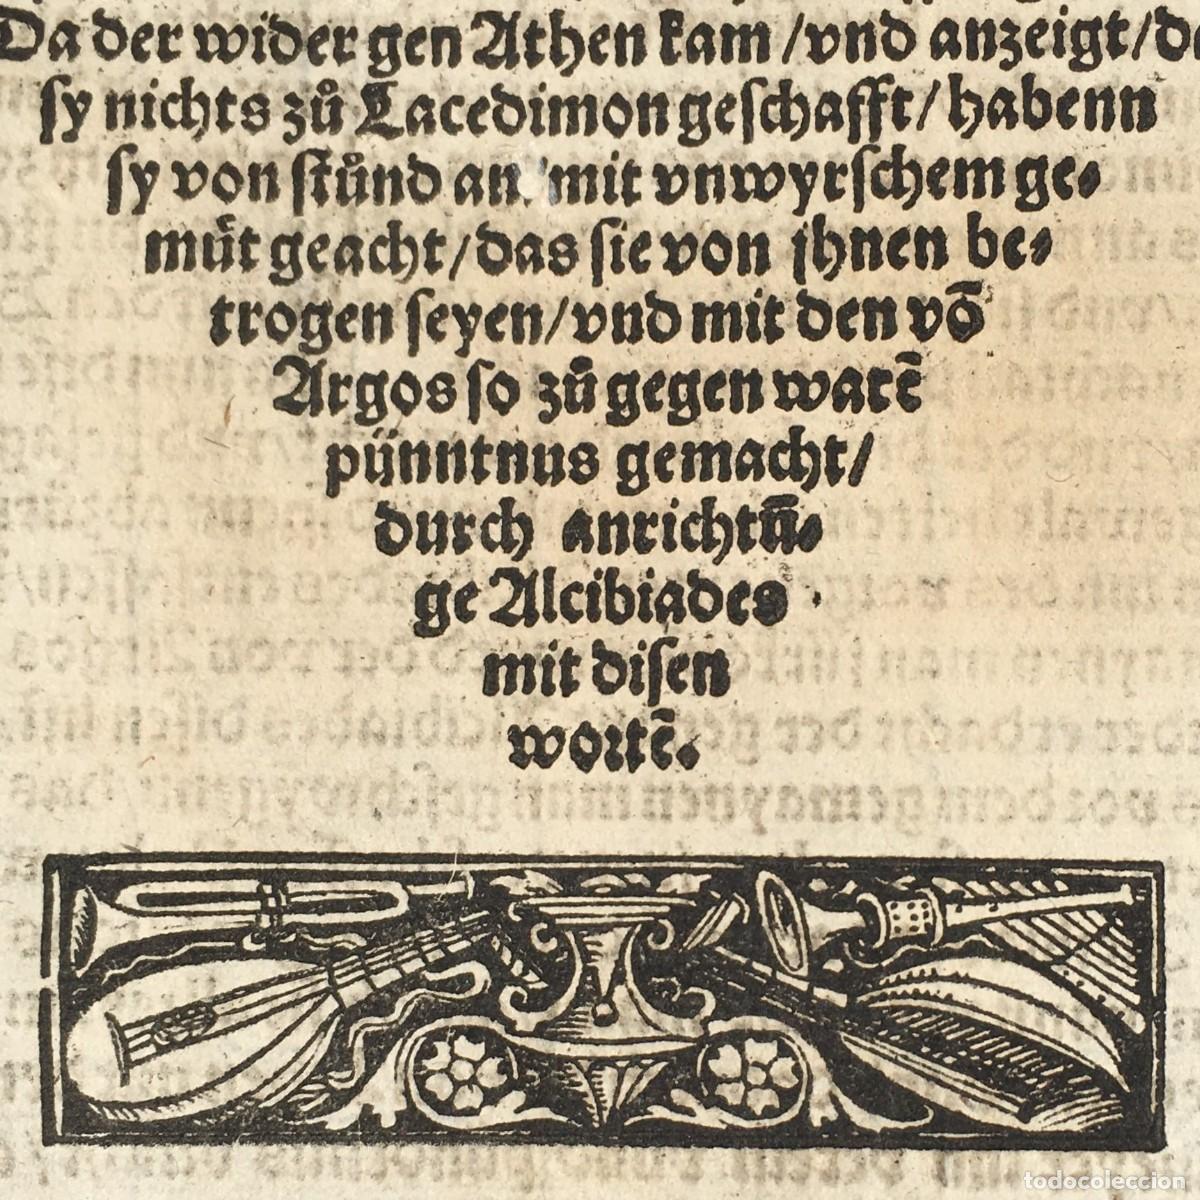 Da der wider gen Athen kam / vnd anzeigt /
sy nichts zů Lacedimon geschafft / habenn
sy von stůnd an mit vnwyrschem ge⸗
müt geacht / das sie von jhnen be⸗
trogen seyen / vnd mit den vō
Argos so zů gegen warē
pünntnus gemacht /
durch anrichtū⸗
ge Alcibiades
mit disen
wortē.
todocoleccion